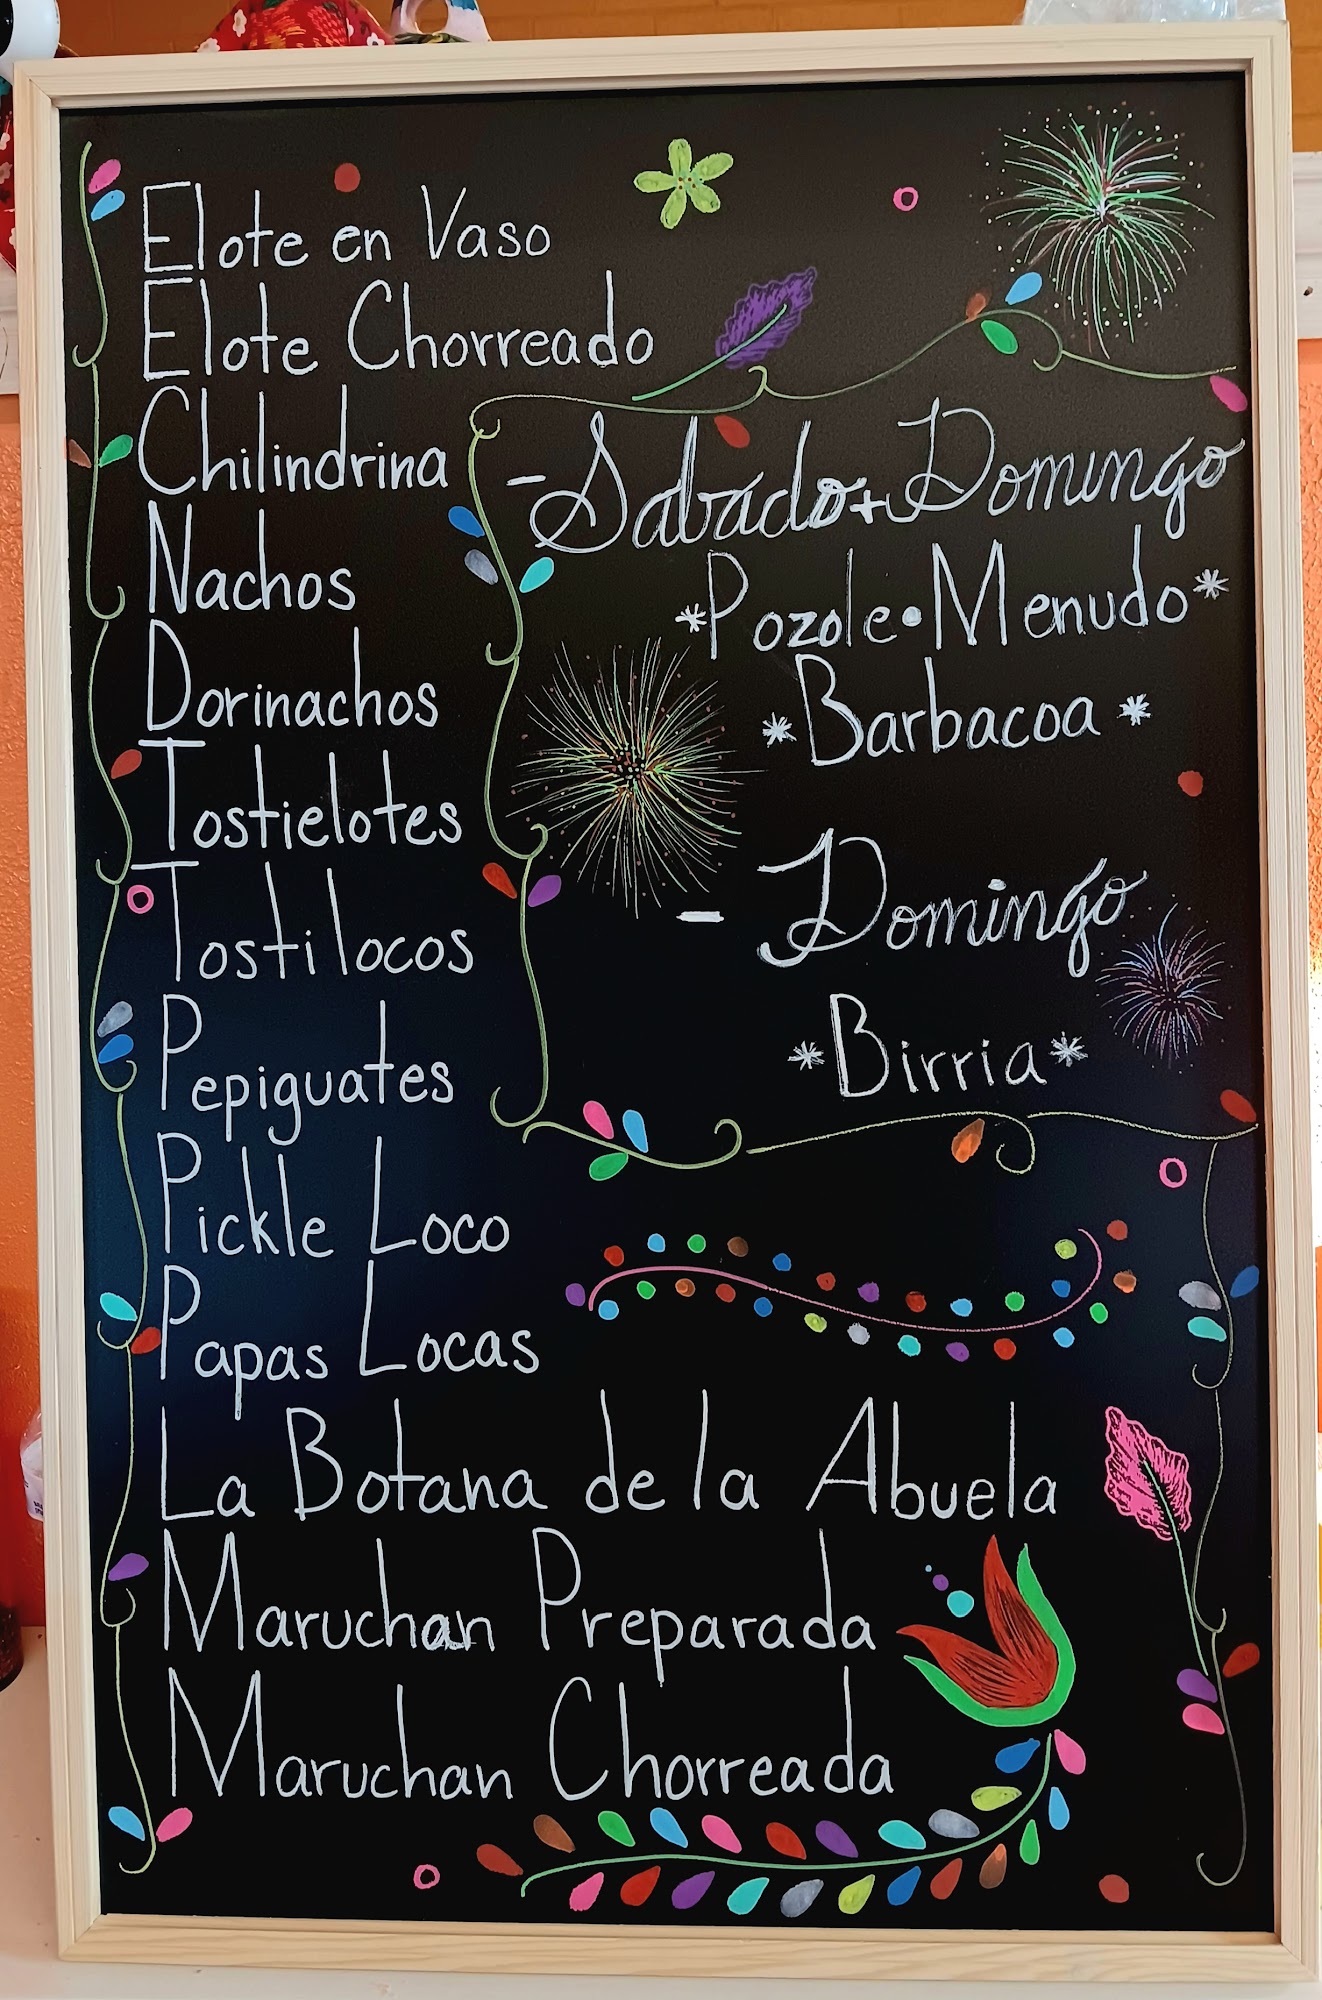 Elote en Vaso
Elote Chorreado
Chilindrina
Nachos
Dorinachos
Tostielotes
Tostilocos
Pepiguates
Pickle Loco
Papas Locas
La Botana de la Abuela
Maruchan Preparada
Maruchan Chorreada
- Sabado + Domingo
*Pozole • Menudo*
*Barbacoa*
- Domingo
*Birria*